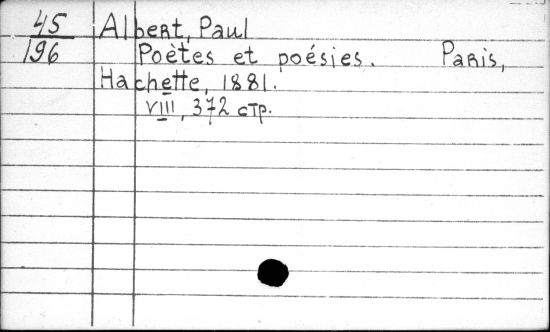 45 Albert, Paul
196 Poètes et poésies. Paris,
Hachette, 1881.
VIII, 372 стр.